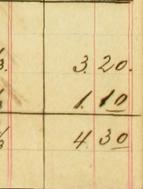 3. 20.
1. 10
4 30